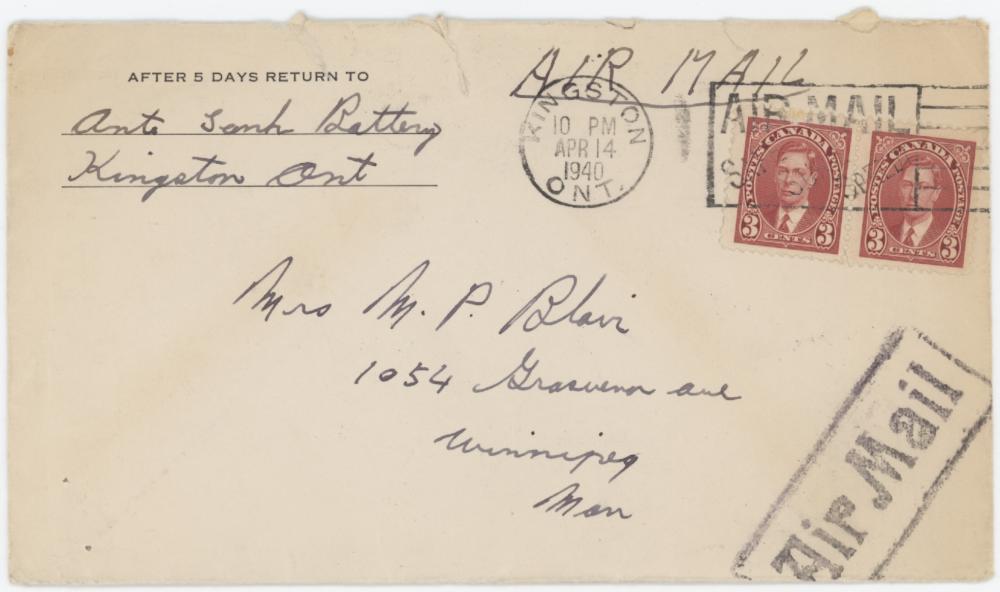 AFTER 5 DAYS RETURN TO
Anti Tank Battery
Kingston Ont
AIR MAIL
KINGSTON
10 PM
APR 14
1940
ONT.
AIR MAIL
POSTES CANADA POSTAGE
3 CENTS 3
POSTES CANADA POSTAGE
3 CENTS 3
Mrs M. P. Blair
1054 Grosvenor ave
Winnipeg
Man
Air Mail